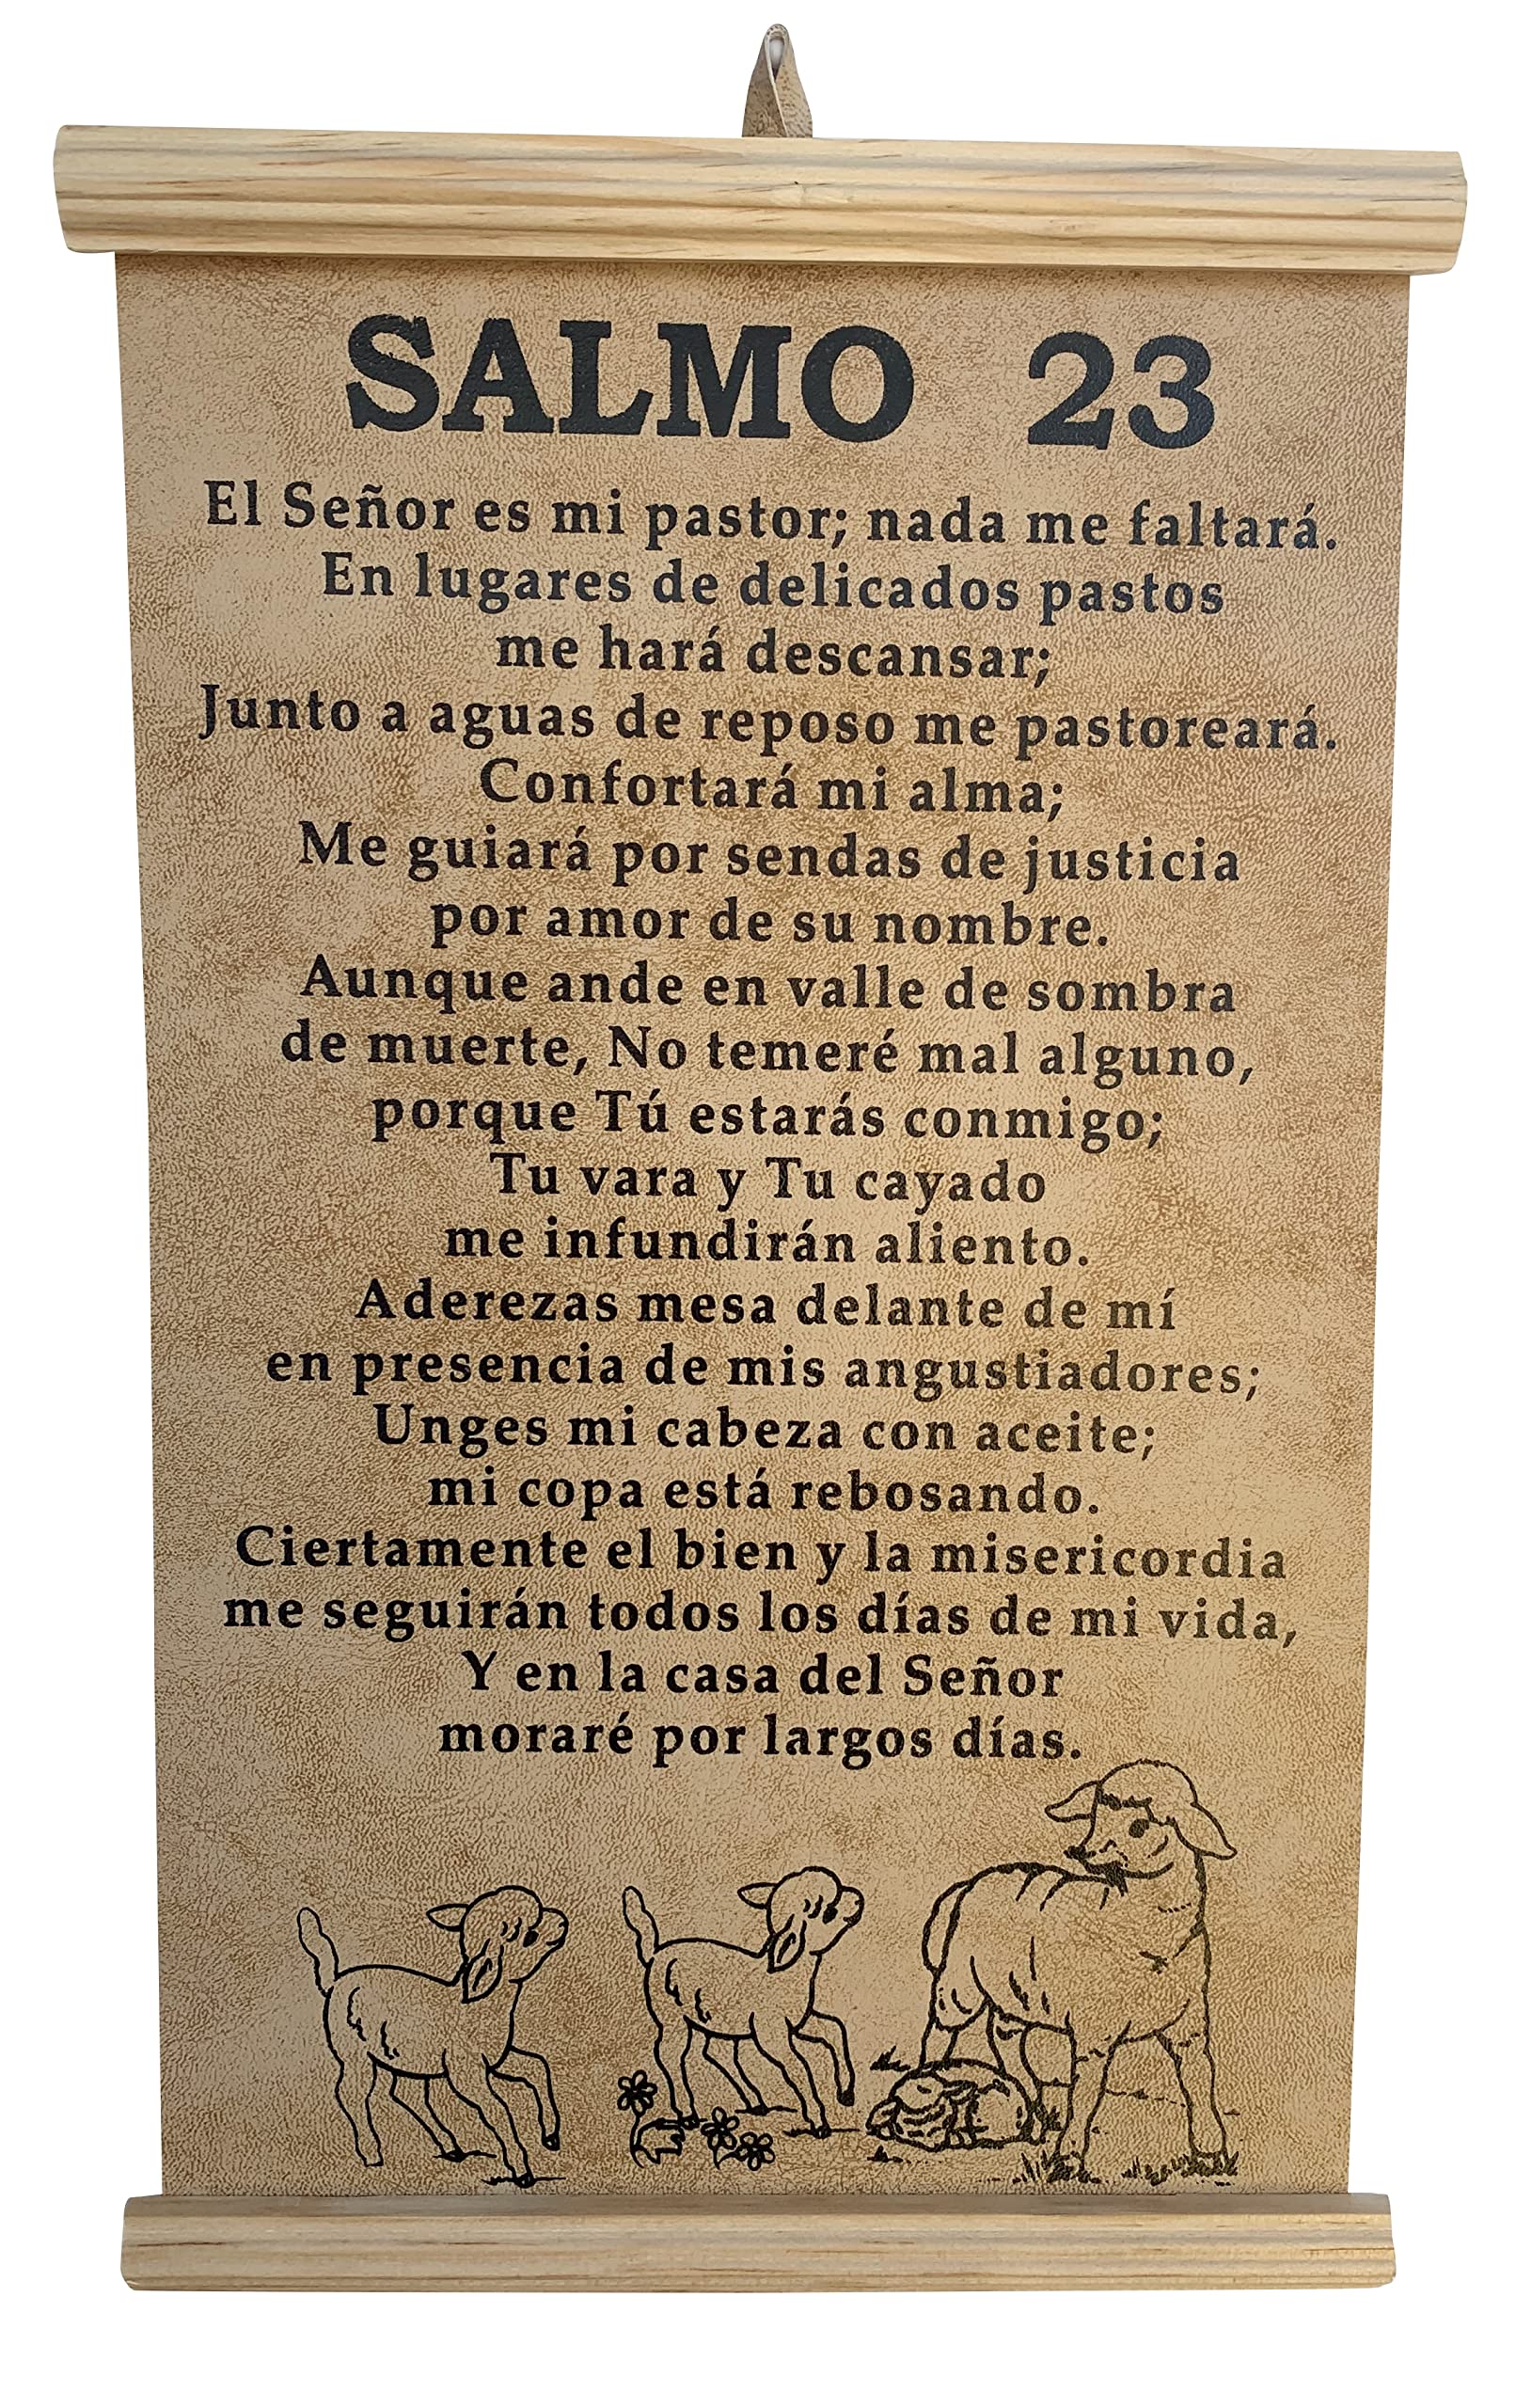 SALMO 23
El Señor es mi pastor; nada me faltará.
En lugares de delicados pastos
me hará descansar;
Junto a aguas de reposo me pastoreará.
Confortará mi alma;
Me guiará por sendas de justicia
por amor de su nombre.
Aunque ande en valle de sombra
de muerte, No temeré mal alguno,
porque Tú estarás conmigo;
Tu vara y Tu cayado
me infundirán aliento.
Aderezas mesa delante de mí
en presencia de mis angustiadores;
Unges mi cabeza con aceite;
mi copa está rebosando.
Ciertamente el bien y la misericordia
me seguirán todos los días de mi vida,
Y en la casa del Señor
moraré por largos días.